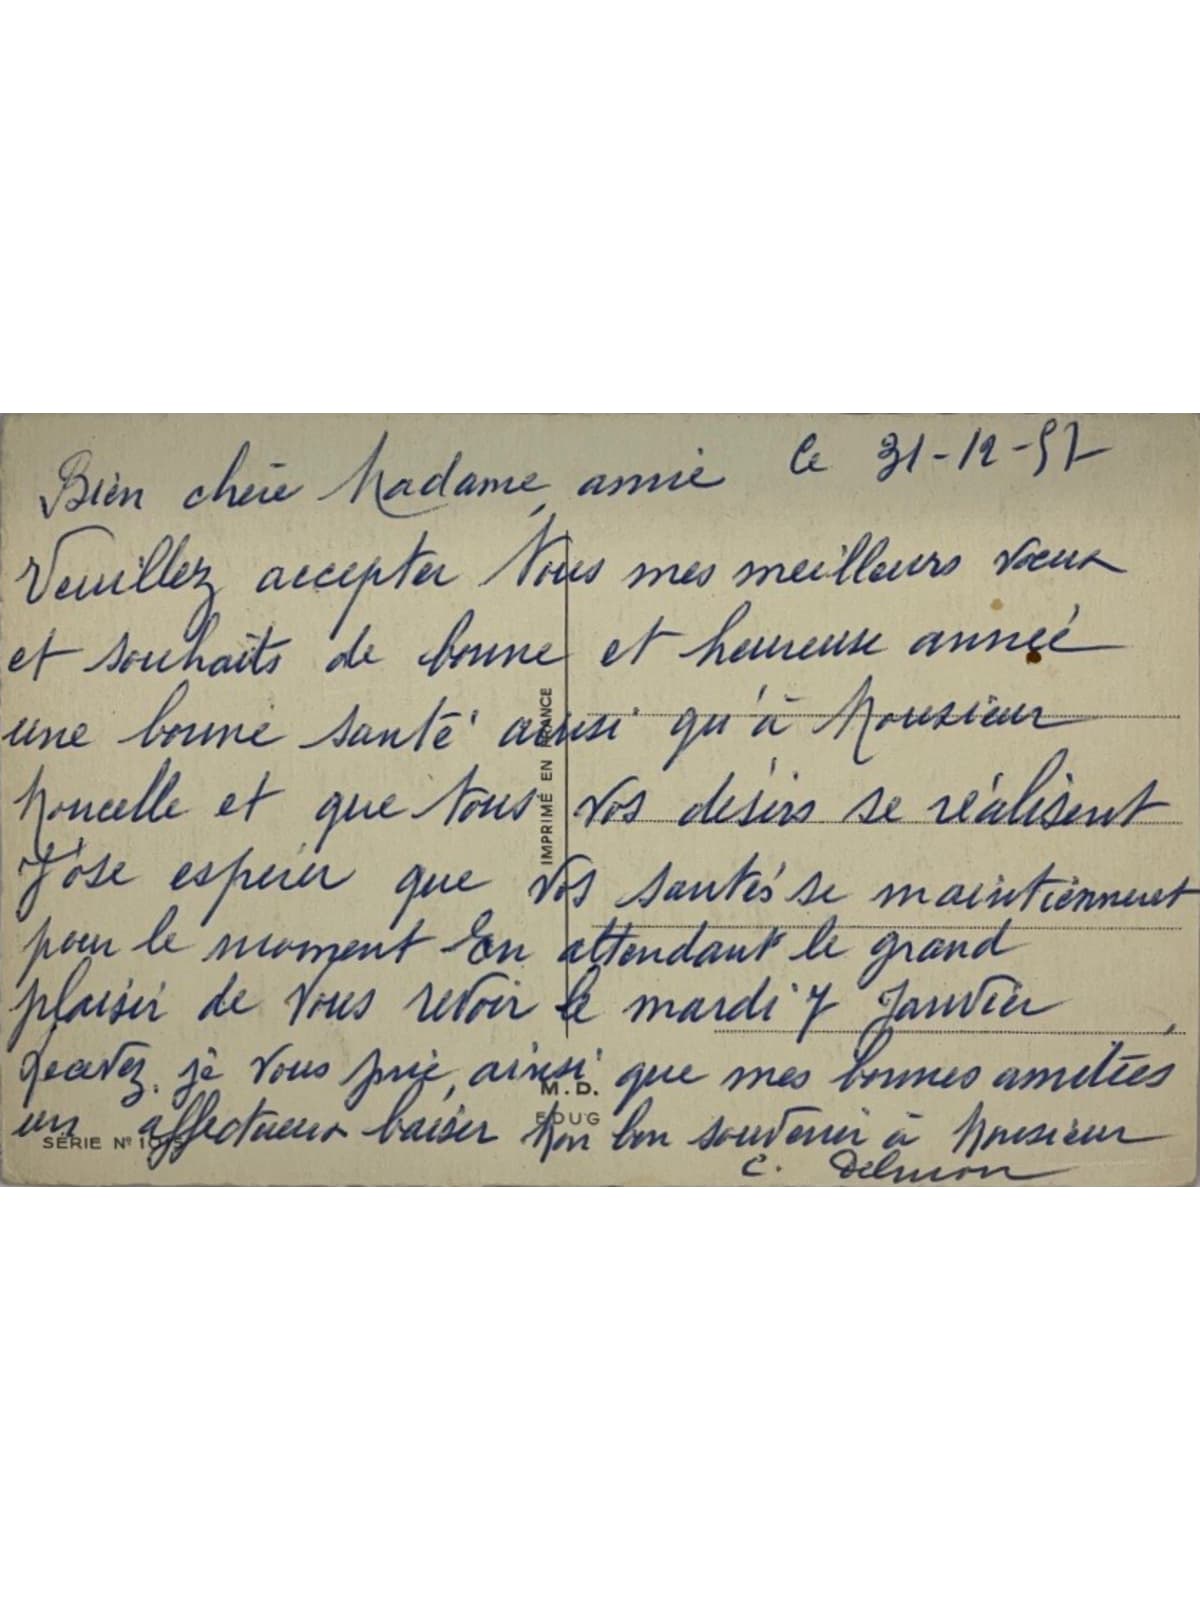 le 31-12-57
Bien chère Madame, amie
Veuillez accepter Tous mes meilleurs voeux
et souhaits de bonne et heureuse année
une bonne santé ainsi qu'à Monsieur
Moncelle et que Tous vos désirs se réalisent
J'ose espérer que vos santés se maintiennent
pour le moment En attendant le grand
plaisir de vous revoir le mardi 7 Janvier
Recevez, je vous prie, ainsi que mes bonnes amitiées
un affectueux baiser Mon bon souvenir à Monsieur
C. Delmon
IMPRIMÉ EN FRANCE
M.D.
FOUG
SÉRIE Nº 1015